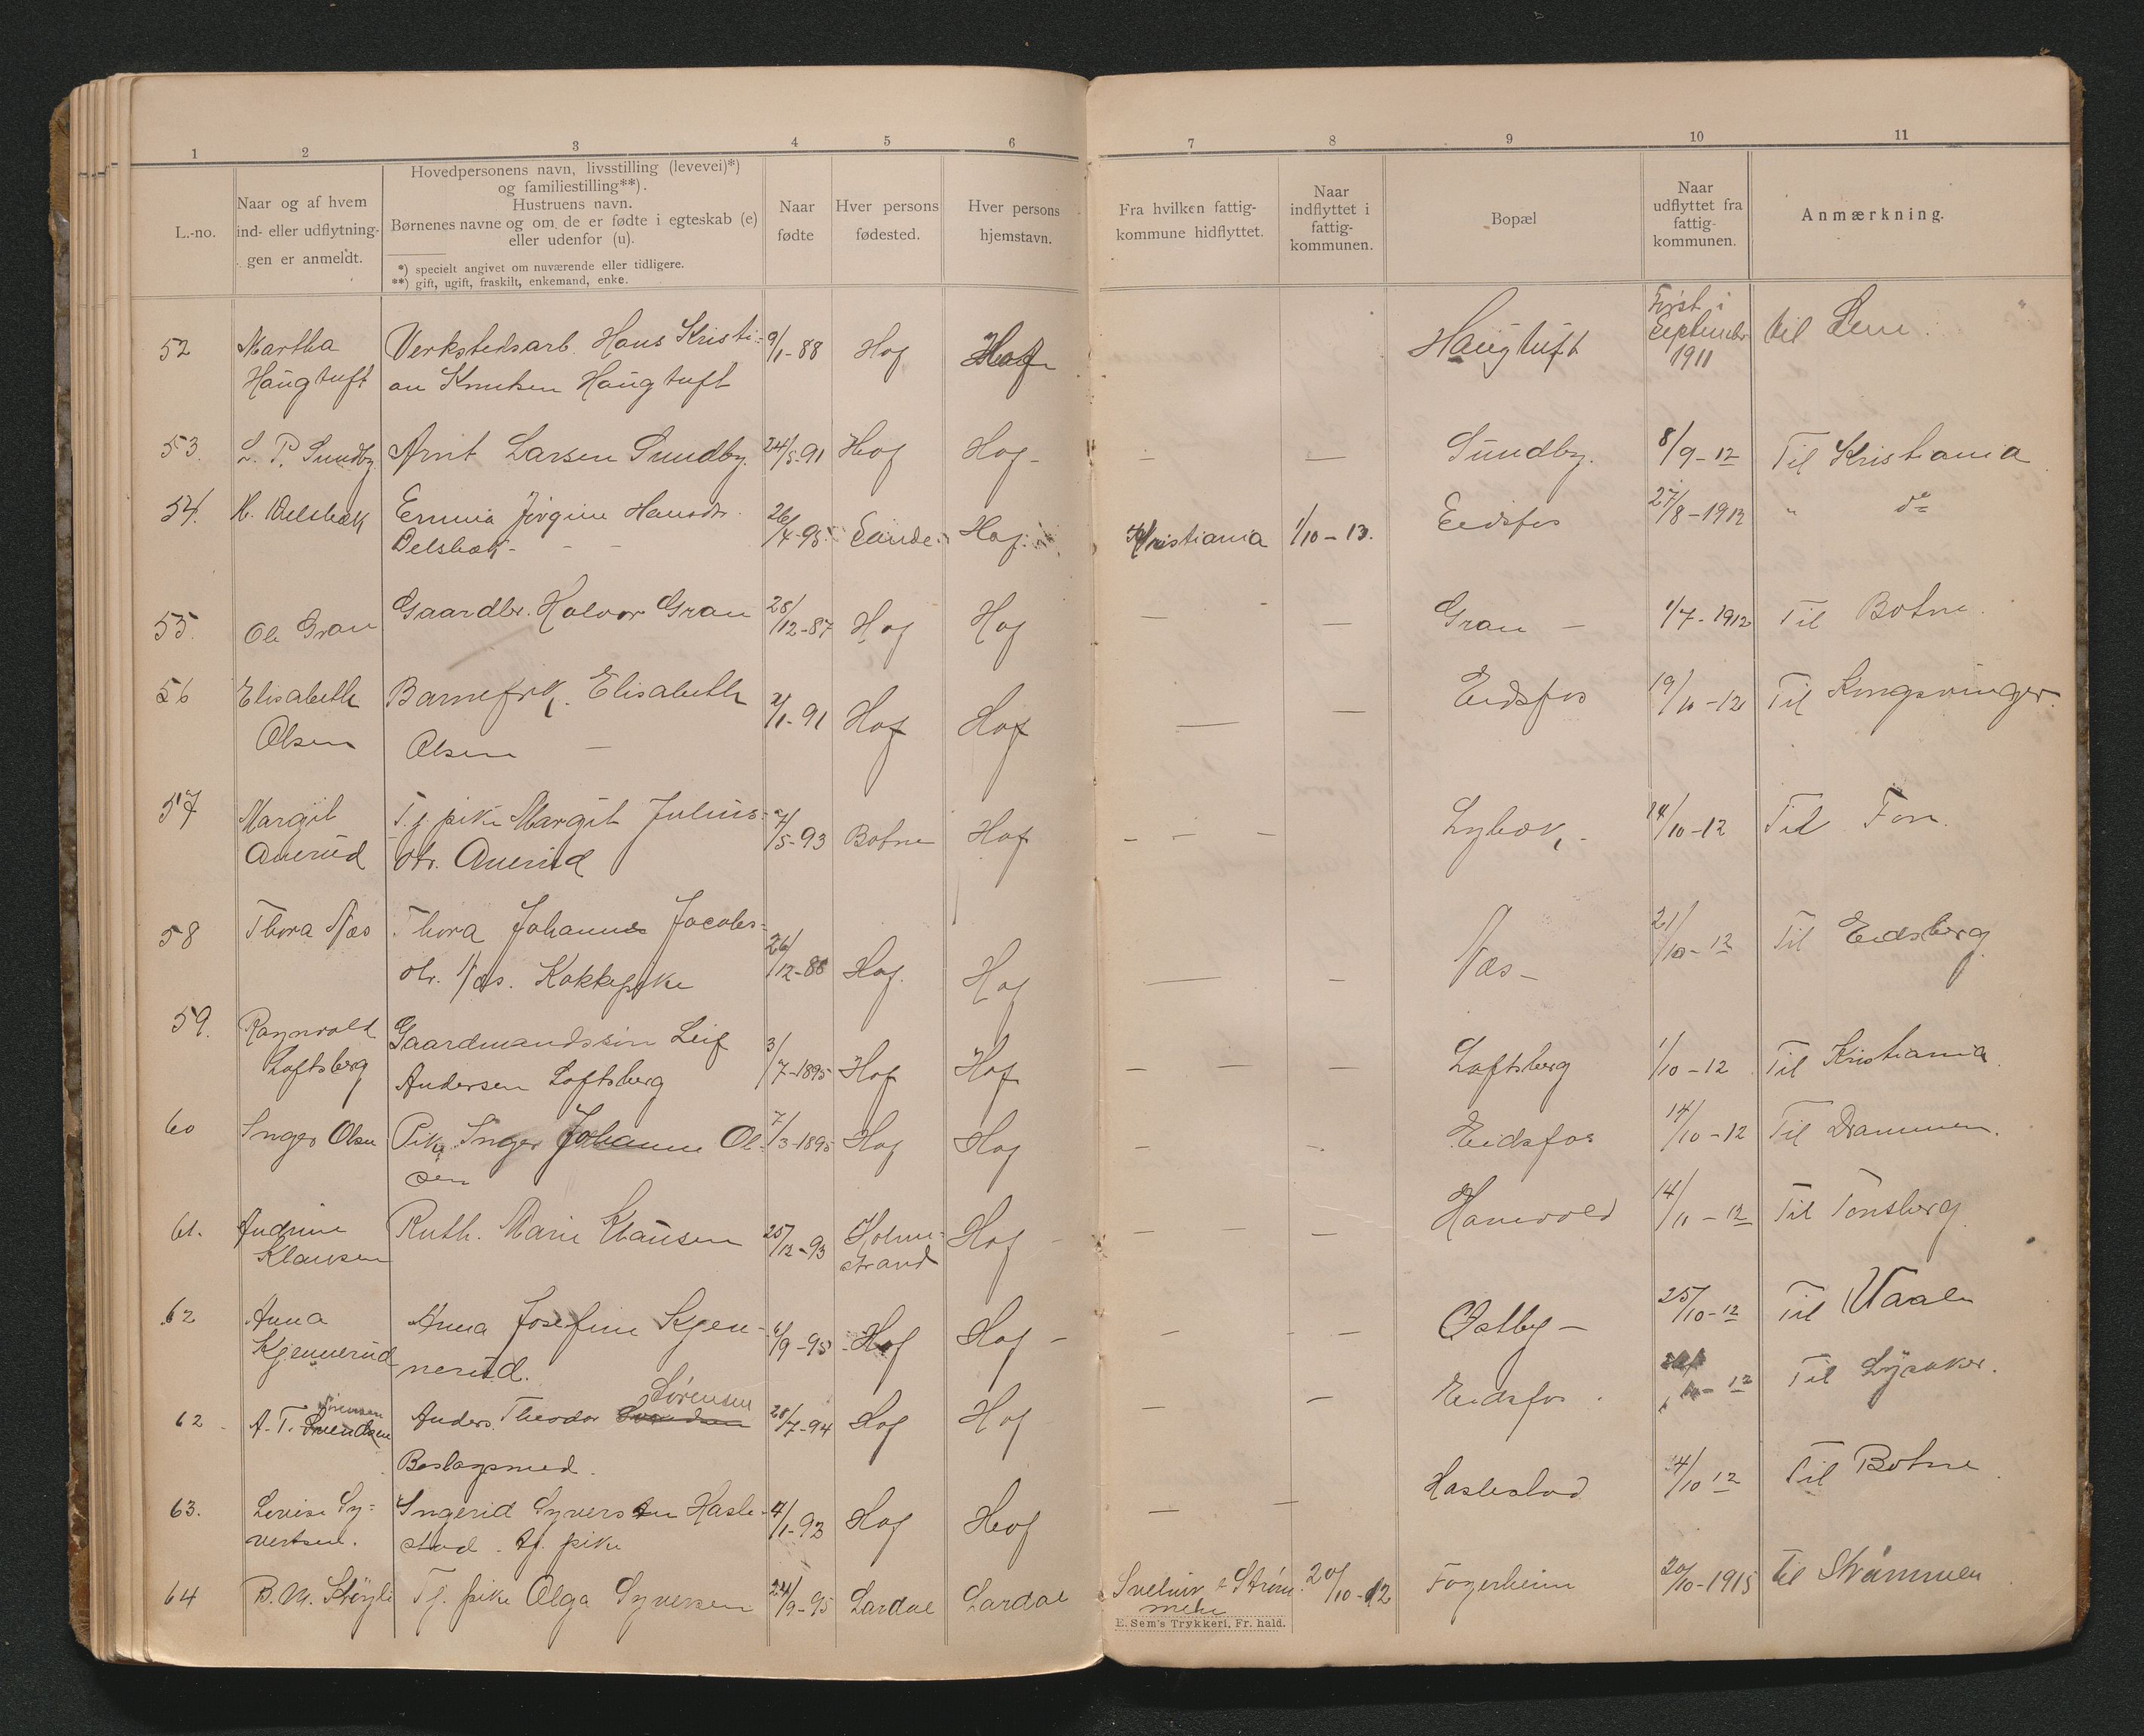 1 2 3 4 5 6 7 8 9 10 11
L.-no.
Naar og af hvem
ind- eller udflytning-
gen er anmeldt.
Hovedpersonens navn, livsstilling (levevei)*)
og familiestilling**).
Hustruens navn.
Børnenes navne og om de er fødte i egteskab (e)
eller udenfor (u).
*) specielt angivet om nuværende eller tidligere.
**) gift, ugift, fraskilt, enkemand, enke.
Naar
fødte
Hver persons
fødested.
Hver persons
hjemstavn.
Fra hvilken fattig-
kommune hidflyttet.
Naar
indflyttet i
fattig-
kommunen.
Bopæl
Naar
udflyttet fra
fattig-
kommunen.
Anmærkning.
52 Martha Verkstedsarb. Hans Kristi- 9/1-88 Hof Hof Haugtuft Først i September 1911 til Sem.
Haugtuft an Knutsen Haugtuft
53. L. P. Sundby Arnt Larsen Sundby. 24/5-91 Hof Hof - — — Sundby. 8/9-12 Til Kristiania
54. H. Delsbæk Emma Jørgine Hansdr. 26/4-95 Sande Hof. Kristiania 1/10-13. Eidsfos 27/8-1912 " do
Delsbæk - - -
55. Ole Gran Gaardbr. Halvor Gran 28/12-87 Hof Hof — — Gran — 1/7-1912 Til Botne.
56 Elisabeth Barnefrk. Elisabeth 2/1-91 Hof Hof — — Eidsfos 19/10-12 Til Kongsvinger.
Olsen Olsen —
57 Margit Tj. pike Margit Julius- 4/5-93 Botne Hof - - - Lybæk. - 14/10-12 Til Fon.
Auerud dtr. Auerud
58 Thora Næs Thora Johanne Jacobs- 26/12-88 Hof. Hof — — Næs - 21/10-12 Til Eidsberg
dtr. Næs. Kokkepike
59. Ragnvald Gaardmandssøn Leif 3/7-1895 Hof Hof - - - Loftsberg 1/10-12 Til Kristiania
Loftsberg Andersen Loftsberg
60 Inger Olsen Pike Inger Johanne Ol- 7/3-1895 Hof Hof - - Eidsfos 14/10-12 Til Drammen.
sen
61. Andrine Ruth. Marie Klausen 25/12-93 Holme- Hof - - — Hanevold 14/11-12 Til Tønsberg
Klausen strand
62 Anna Anna Josefine Kjen- 6/9-95 Hof Hof - - - - Østby — 25/10-12 Til Vaale
Kjennerud nerud.
Sørensen Sørensen
62 A. T. Svendsen Anders Theodor Svendsen 28/7-94 Hof Hof - - Eidsfos. 12 Til Lysaker.
Beslagsmed.
63. Lovise Sy- Ingerid Syversen Hasle- 4/1-93 Hof Hof — — Haslestad 4/10 12 Til Botne
vertsen. stad. Tj. pike
64 B. M. Tj. pike Olga Syversen 24/9-95 Lardal Lardal Svelvik & Strøm- 20/10-12 Fagerheim 20/10-1915 til Strømmen
E. Sem's Trykkeri, Fr. hald.